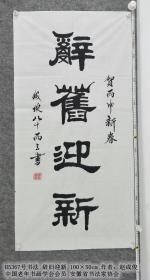 賀丙申新春
辭舊迎新
八十而三書
H5367号书法 辞旧迎新,100×50cm,作者:赵成俊
中国老年书画学会会员 安徽省书法家协会